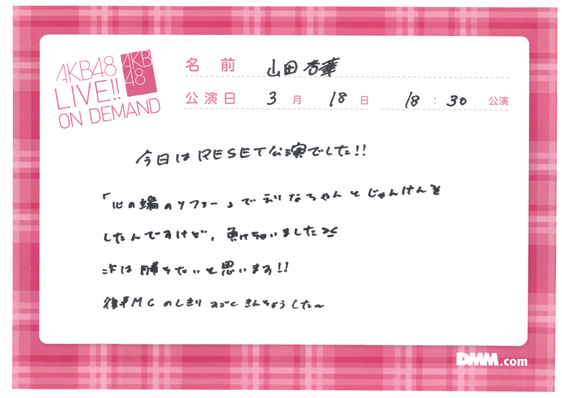 AKB48
LIVE!!
ON DEMAND
AKB
48
名前 山田杏華
公演日 3月 18日 18:30 公演
今日はRESET公演でした!!
「心の端のソファー」で りなちゃんとじゃんけんを
したんですけど、負けちゃいました><
次は勝ちたいと思います!!
後半MCのしきり すごくきんちょうした〜
DMM.com